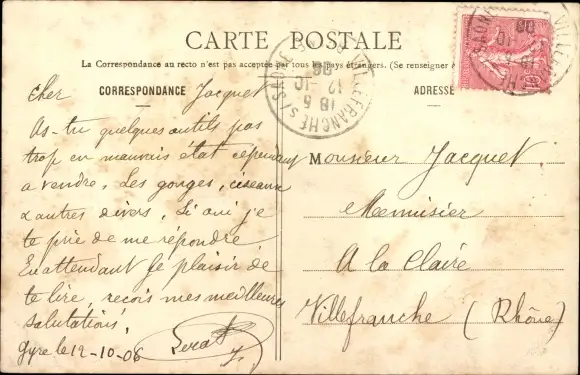 CARTE POSTALE
La Correspondance au recto n'est pas acceptée par tous les pays étrangers. (Se renseigner
CORRESPONDANCE
ADRESSE
VILLEFRANCHE S/SAÔNE
18 5
12 -10
06
Cher Jacquet
As-tu quelques outils pas
trop en mauvais état cependant
a vendre. Les gouges, ciseaux
& autres divers. Si oui je
te prie de me répondre
En attendant le plaisir de
te lire, reçois mes meilleures
salutations.
le 12-10-06
Monsieur Jacquet
Menuisier
A la Claire
Villefranche (Rhône)